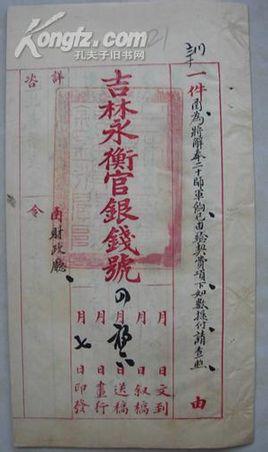 Kongfz.com
孔夫子旧书网
一件 函為將解奉二十師軍餉已由驗契費項下如數撥付請查照 由
吉林永衡官銀錢號
詳
咨
令
函財政廳
月 日文到
月 日叙稿
月 日送稿
月 日畫行
月 七 日印發